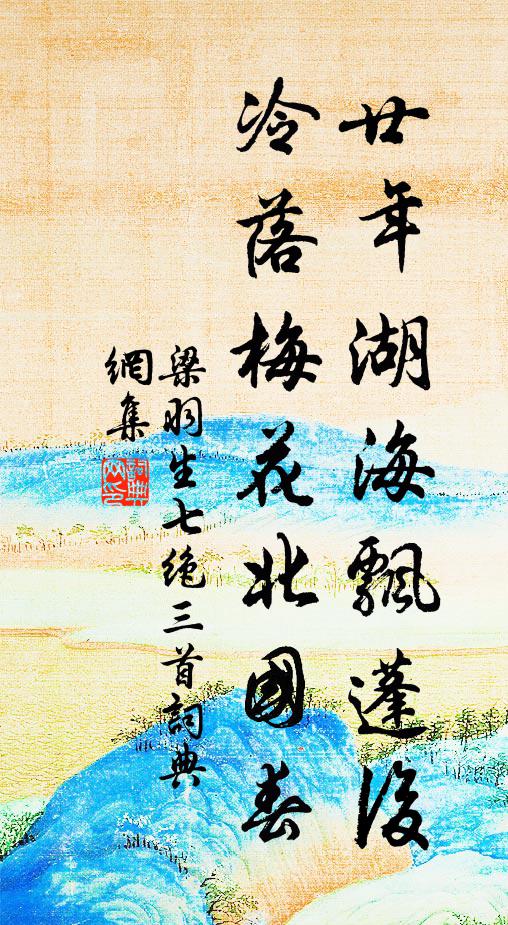 廿年湖海飄蓬後
冷落梅花北國春
梁羽生七絕三首詞典
網集
詞典